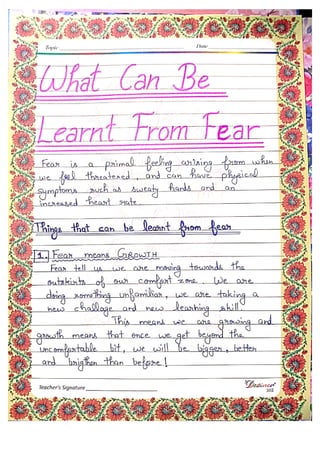 Topic
Date
What Can Be
Learnt From Fear
Fear is a primal feeling arising from when
we feel threatened, and can have physical
symptoms such as sweaty hands and an
increased heart rate.
Things that can be learnt from fear
1. Fear means GROWTH
Fear tell us we are moving towards the
outskirts of our comfort zone. We are
doing something unfamiliar, we are taking a
new challage and new learning skill.
This means we are growing and
growth means that once we get beyond the
uncomfortable bit, we will be bigger, better
and brighter than before!
Teacher's Signature